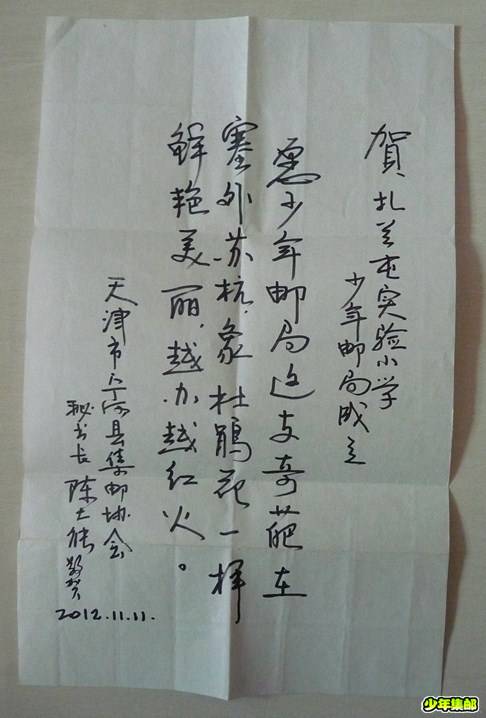 賀扎兰屯实验小学
少年邮局成立
愿少年邮局这支奇葩在
塞外苏杭,象杜鹃花一样
鲜艳美丽,越办越红火。
天津市宁河县集邮协会
秘书长 陈士能 敬贺
2012.11.11.
少年集邮